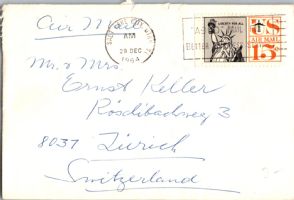 Air Mail
AM
28 DEC
1964
LIBERTY FOR ALL
US
AIR MAIL
15¢
Mr & Mrs
Ernst Keller
Rösdibachweg 3
8037 Zürich
Switzerland